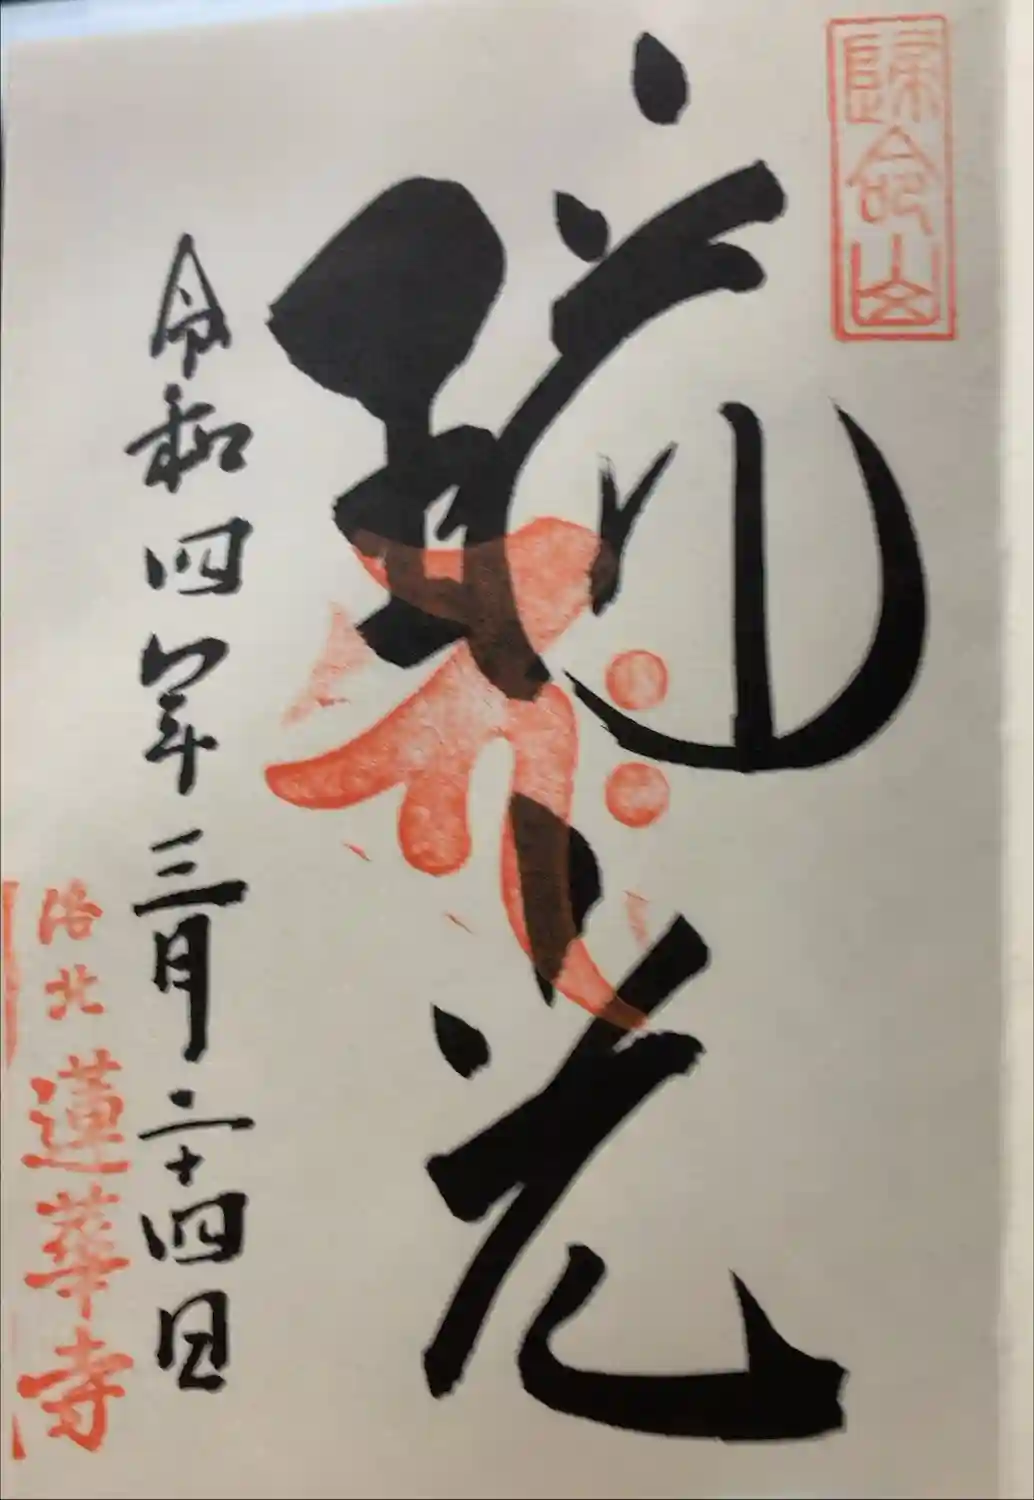 歸命山
花
令和四年三月二十四日
洛北 蓮華寺